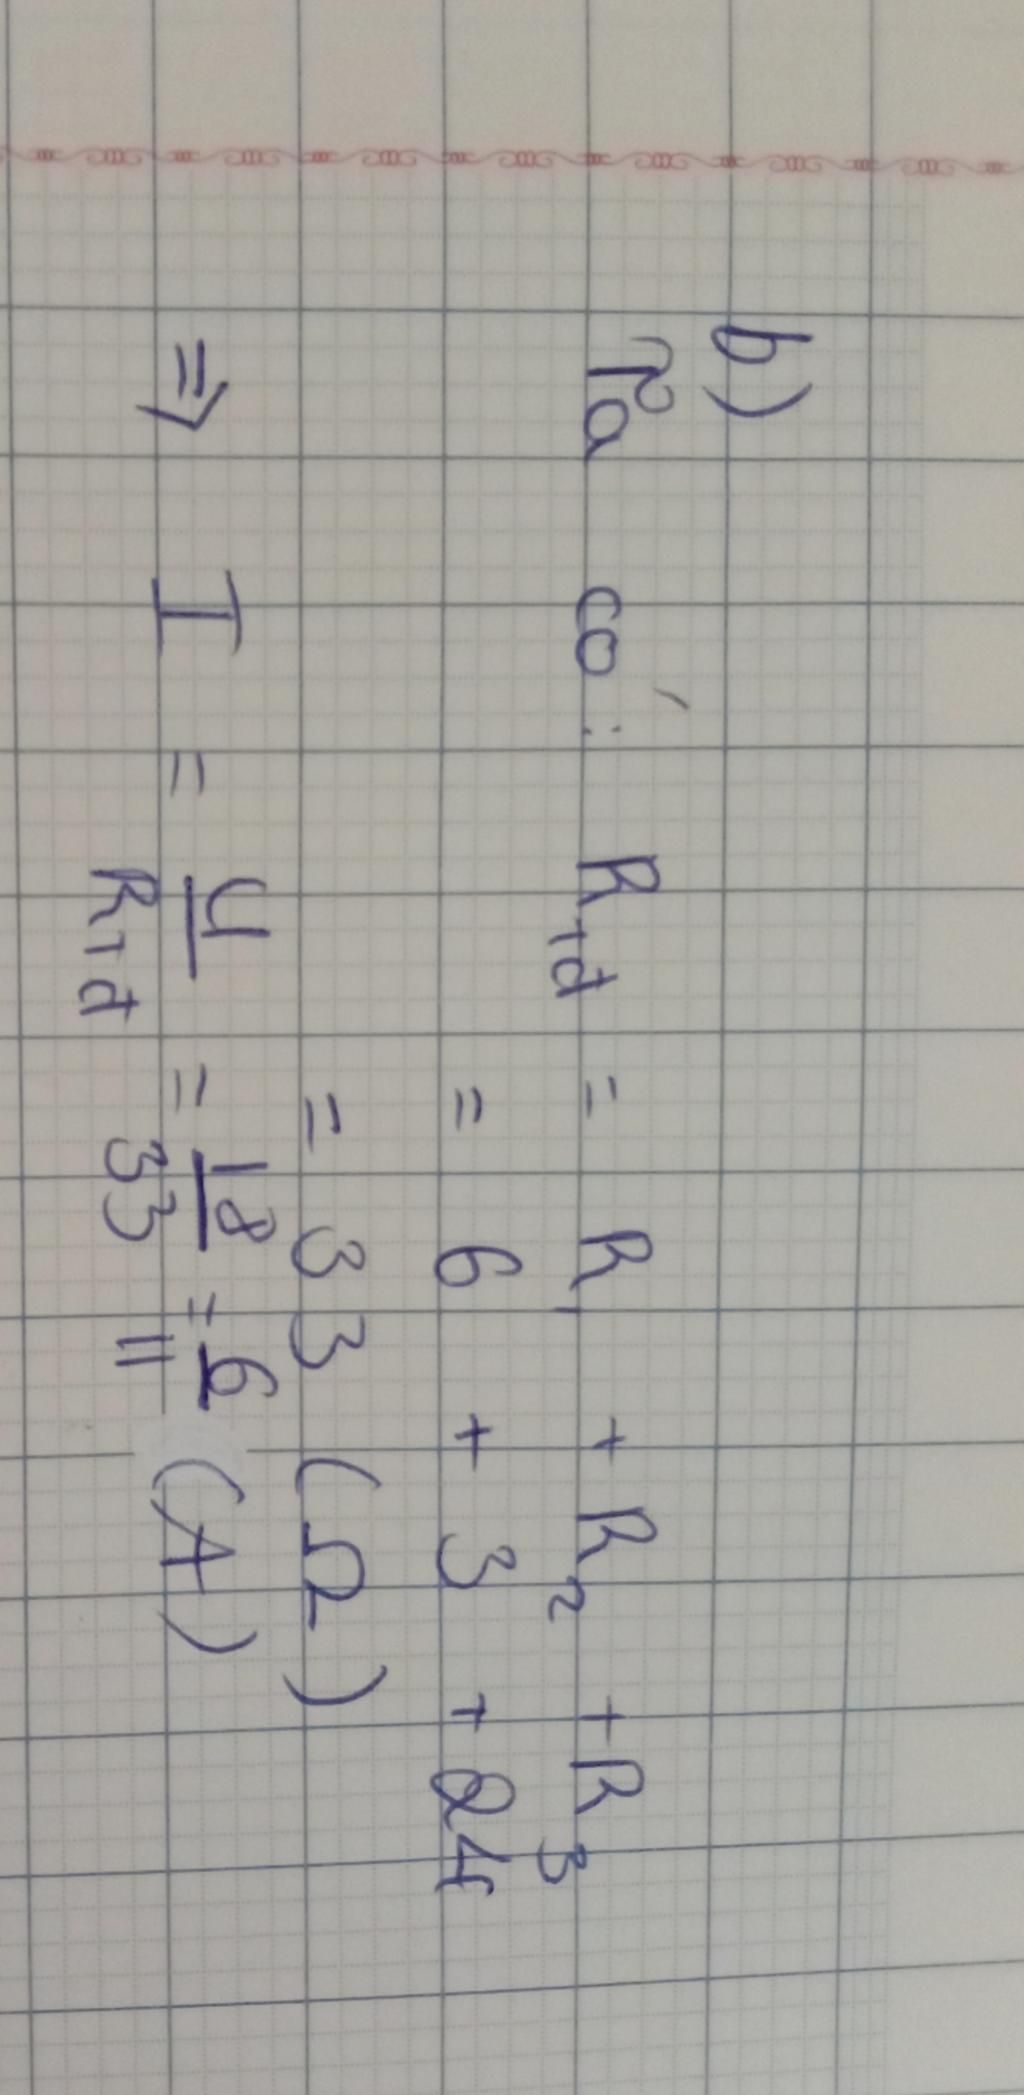 b)
Ta có: Rtđ = R₁ + R₂ + R₃
= 6 + 3 + 24
= 33 (Ω)
⇒ I = U/Rtđ = 18/33 = 6/11 (A)